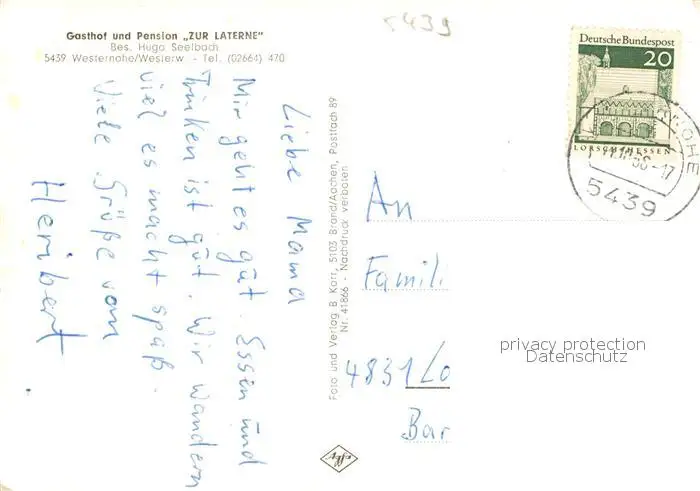 Gasthof und Pension „ZUR LATERNE"
Bes. Hugo Seelbach
5439 Westernohe/Westerw - Tel. (02664) 470
5439
Liebe Mama
Mir geht es gut. Essen und
Trinken ist gut. Wir wandern
viel es macht spaß.
Viele Grüße vom
Heribert
Foto und Verlag B. Karr, 5103 Brand/Aachen, Postfach 89
Nr. 41866 - Nachdruck verboten
Deutsche Bundespost
20
LORSCH/HESSEN
5439
An
Famili
4831 Lo
Bar
privacy protection
Datenschutz